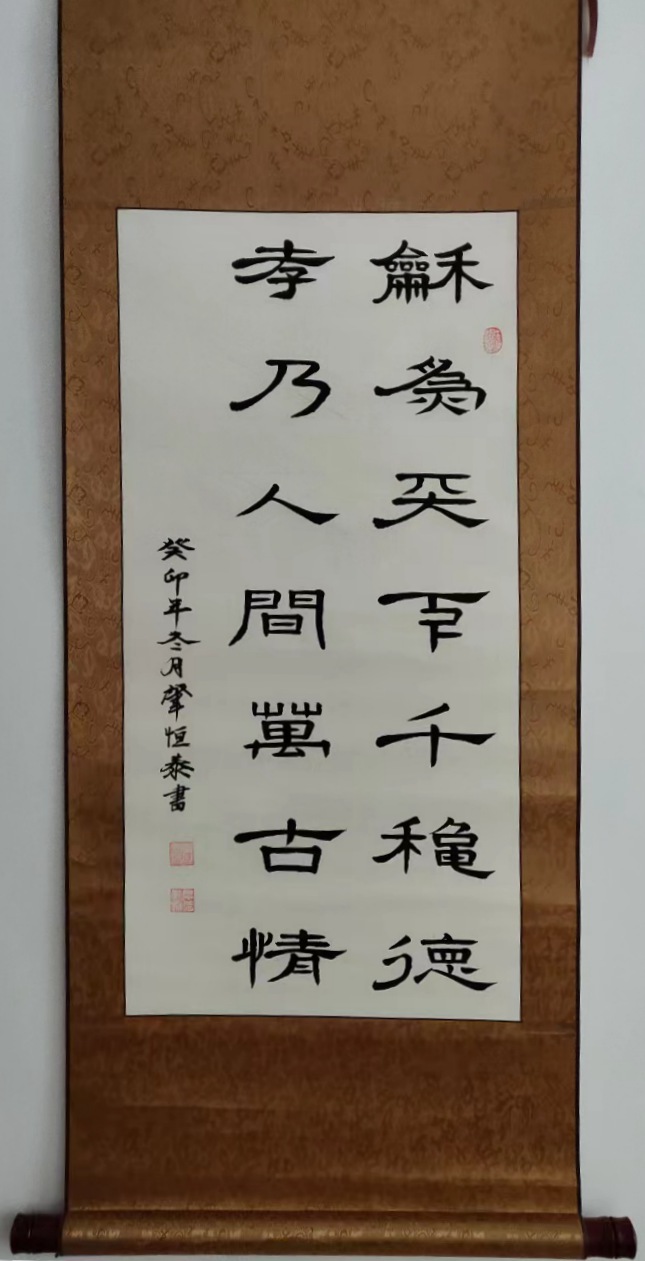 龢為天下千穐德
孝乃人間萬古情
癸卯年冬月肇恒泰書